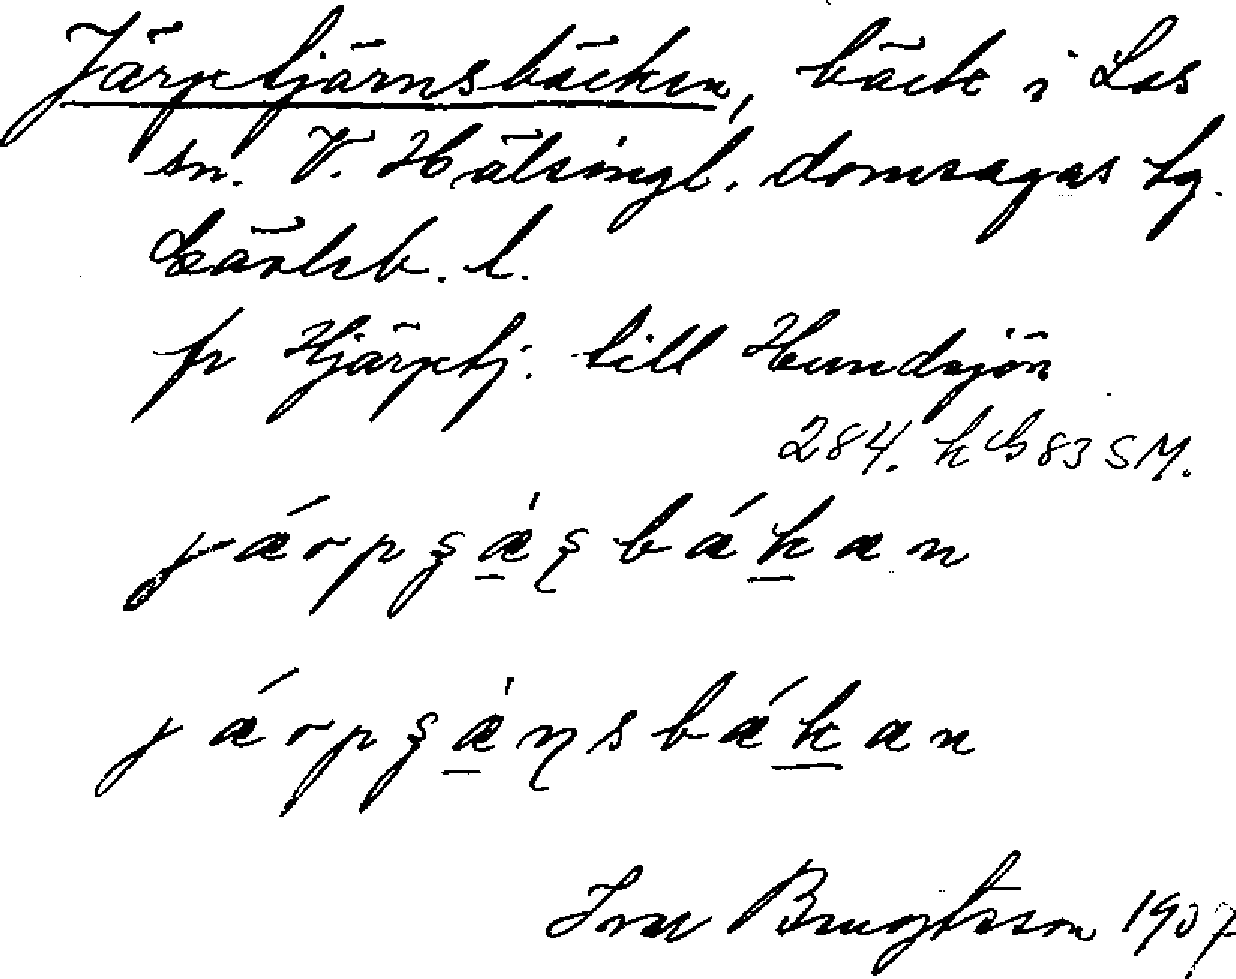 Järptjärnsbäcken, bäck i Los
sn. V. Hälsingl. domsagas tg.
Gävleb. l.
fr Hjärptj. till Hundsjön
284. k G 83 SM.
järpʂæʂbäkan
järpʂæɳsbäkan
Ivar Bengtsson 1907